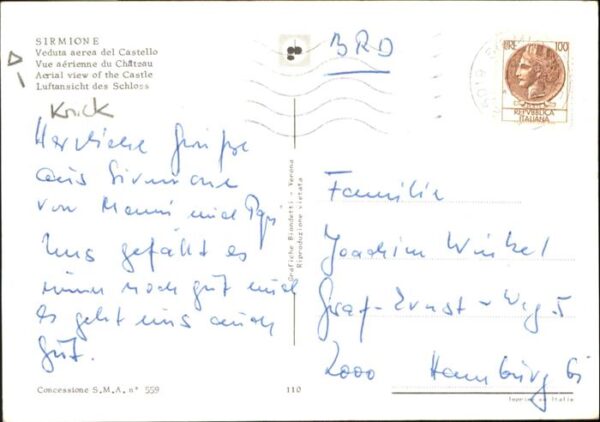 SIRMIONE
Veduta aerea del Castello
Vue aérienne du Château
Aerial view of the Castle
Luftansicht des Schloss
Knick
Herzliche Grüße
aus Sirmione
von Mammi und Papi
Uns gefällt es
immer noch gut und
es geht uns auch
gut.
Concessione S.M.A. n° 559
110
Grafiche Biondetti - Verona
Riproduzione vietata
BRD
LIRE 100
REPVBBLICA
ITALIANA
Familie
Joachim Winkel
Graf-Ernst-Weg 5
2000 Hamburg 61
Imprimé en Italie